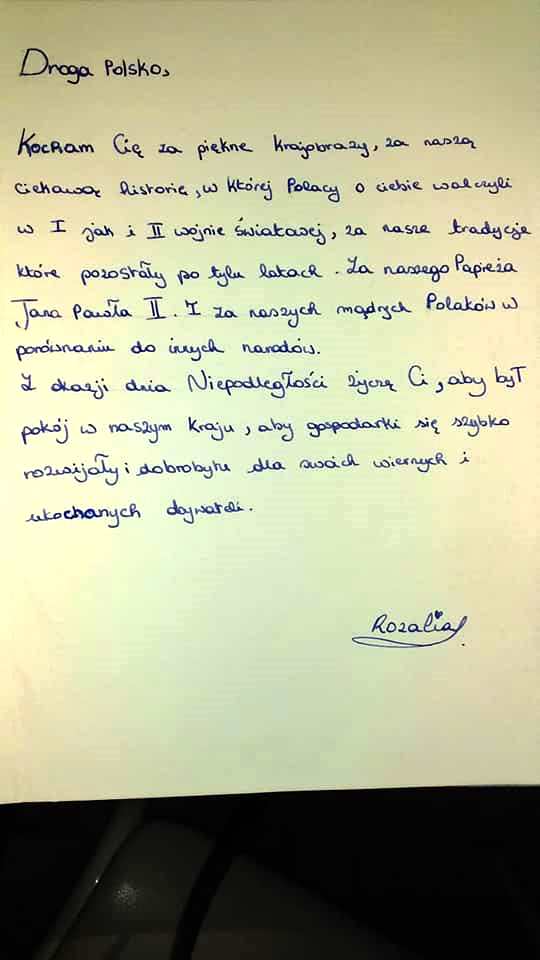 Droga Polsko,
Kocham Cię za piękne krajobrazy, za naszą
ciekawą historię, w której Polacy o ciebie walczyli
w I jak i II wojnie światowej, za nasze tradycje
które pozostały po tylu latach. Za naszego Papieża
Jana Pawła II. I za naszych mądrych Polaków w
porównaniu do innych narodów.
Z okazji dnia Niepodległości życzę Ci, aby był
pokój w naszym kraju, aby gospodarki się szybko
rozwijały i dobrobytu dla swoich wiernych i
ukochanych obywateli.
Rozalia